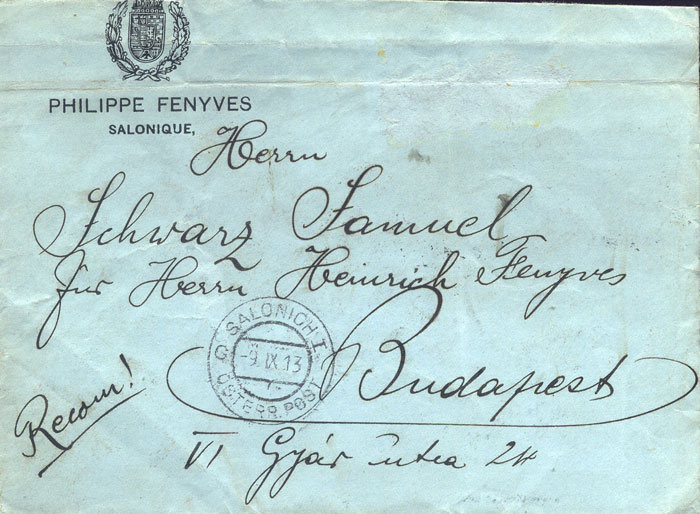 PHILIPPE FENYVES
SALONIQUE,
Herrn
Schwarz Samuel
für Herrn Heinrich Fenyves
Budapest
VI Gyár utca 24
Recom!
SALONICH I.
-9.IX.13
G ÖSTERR. POST